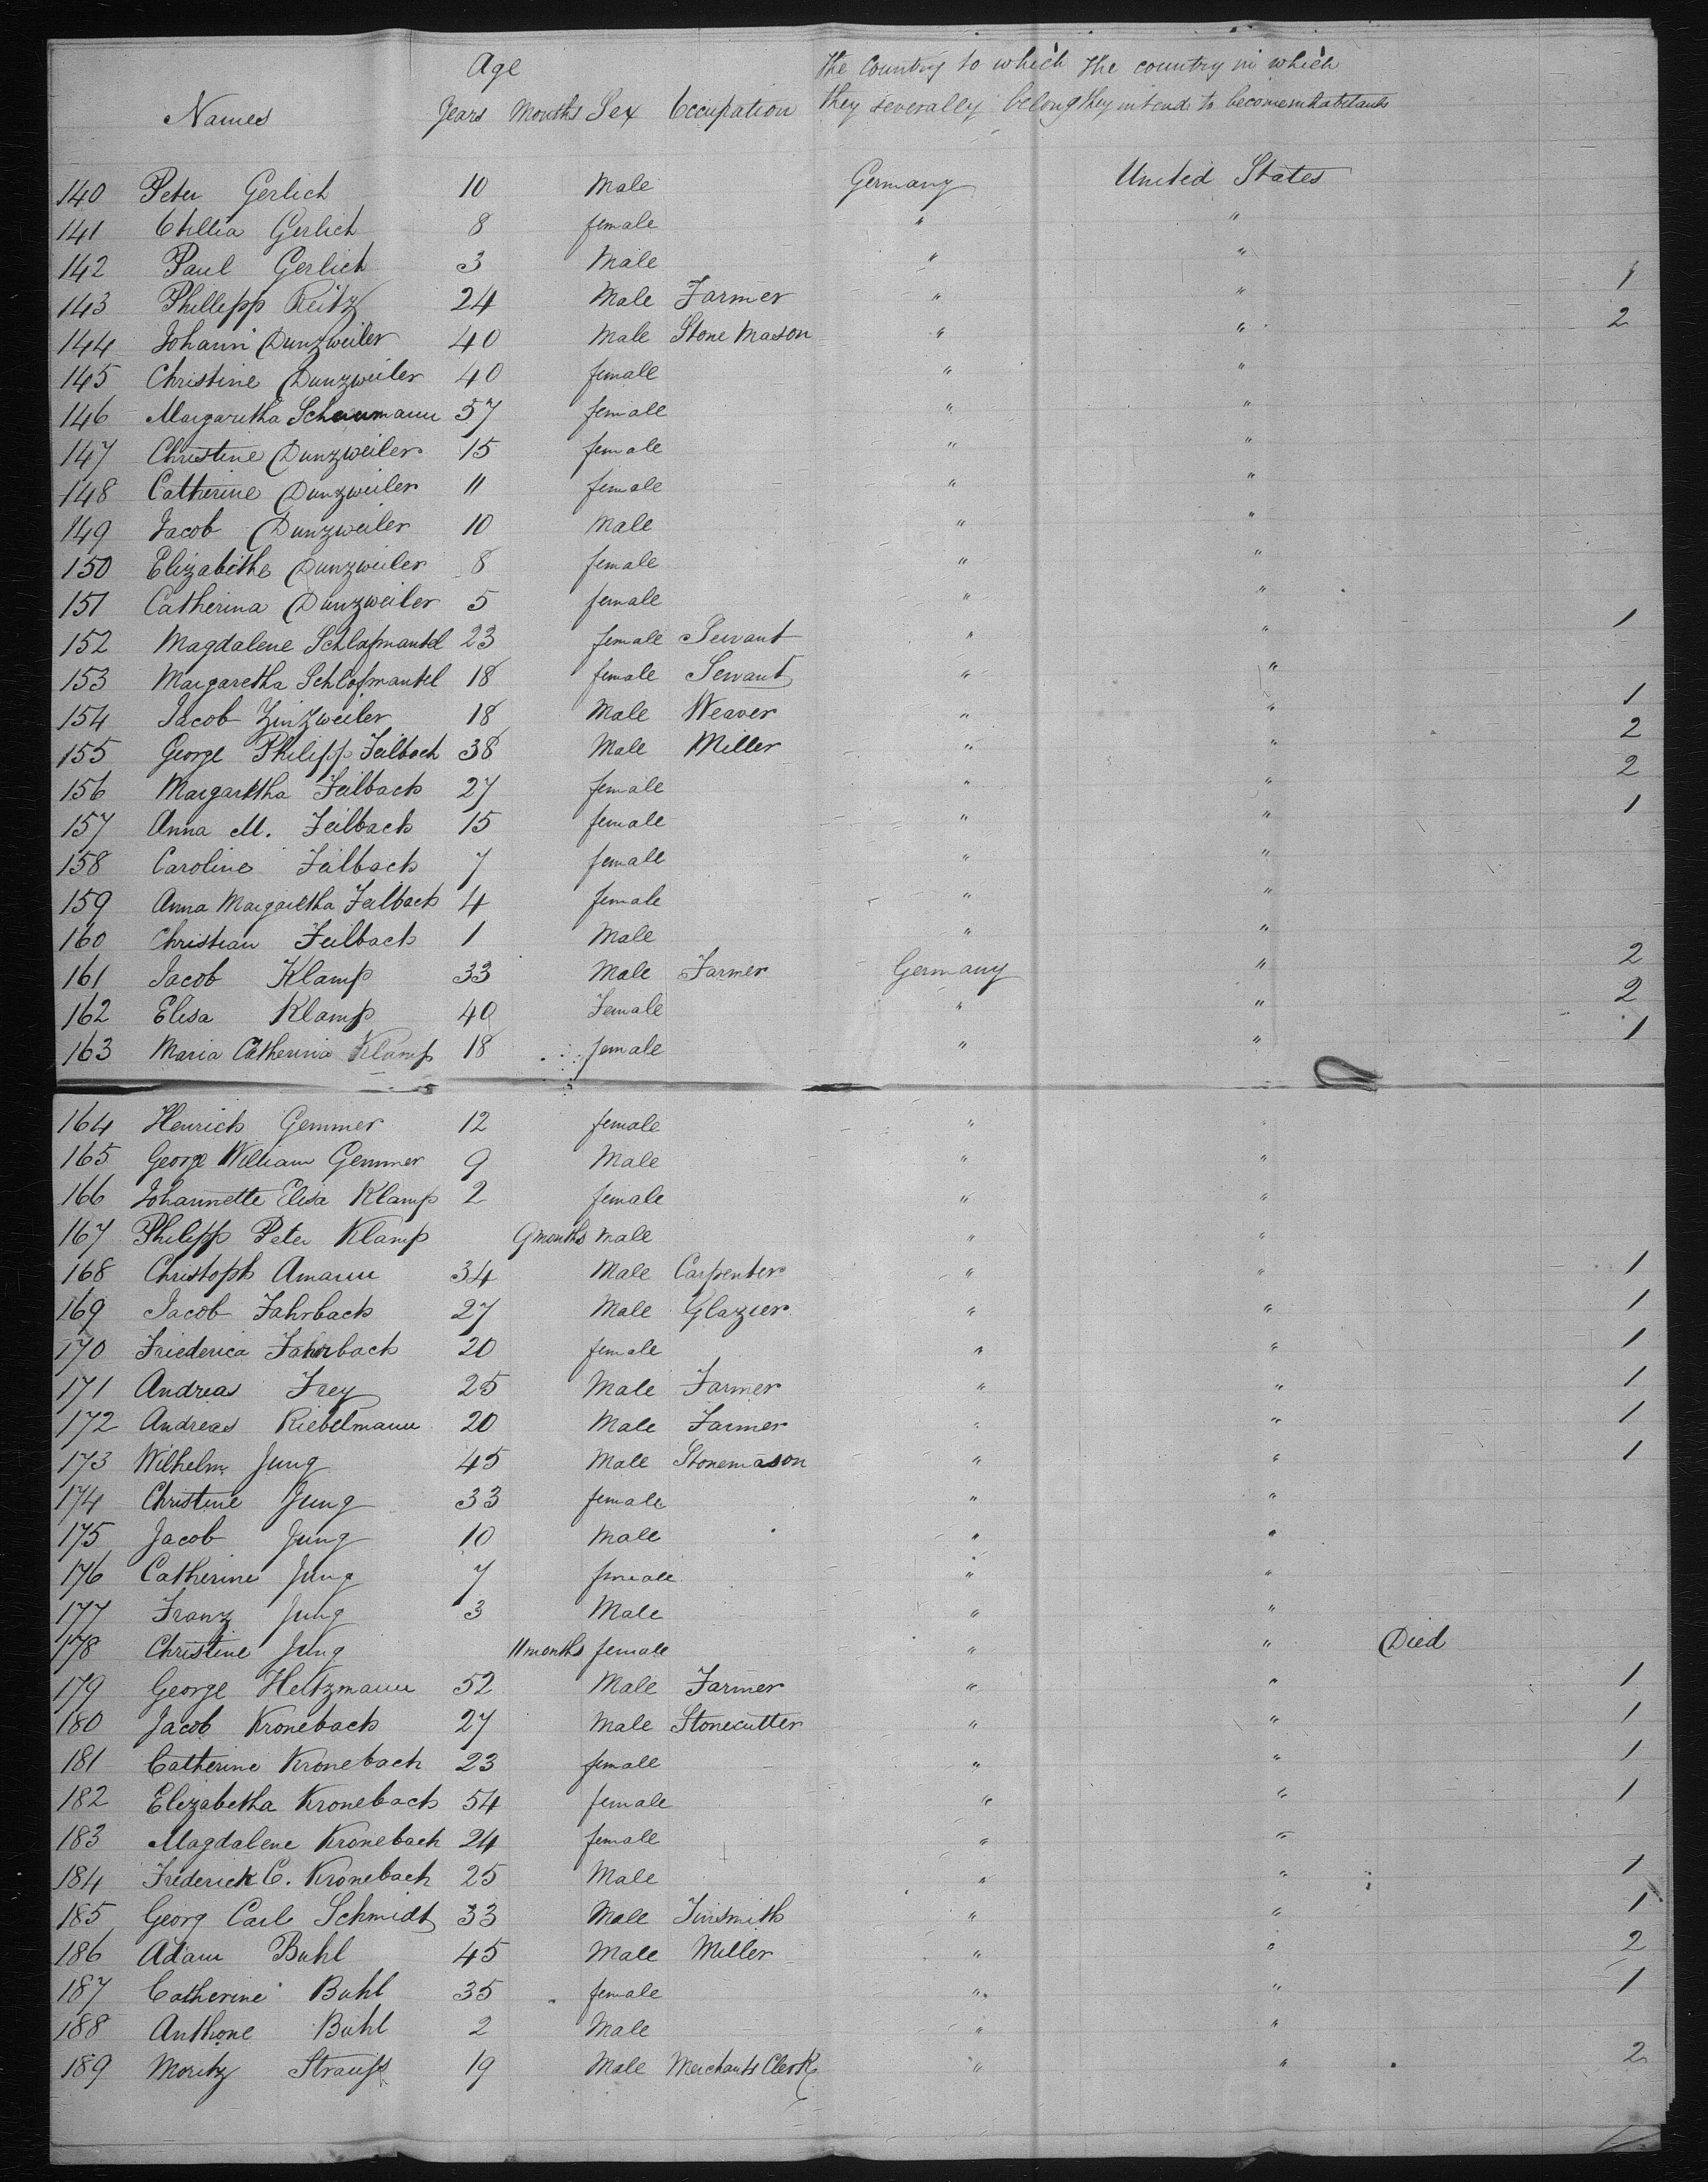 Age the Country to which the country in which
Names Years Months Sex Occupation they severally belong they intend to become inhabitants
140 Peter Gerlich 10 Male Germany United States
141 Gerlich 8 female " "
142 Paul Gerlich 3 Male " "
143 Phillipp Reitz 24 Male Farmer " " 1
144 Johann Dunzweiler 40 Male Stone Mason " " 2
145 Christine Dunzweiler 40 female " "
146 Margaretha Schaumann 57 female " "
147 Christine Dunzweiler 15 female " "
148 Catherine Dunzweiler 11 female " "
149 Jacob Dunzweiler 10 Male " "
150 Elizabethe Dunzweiler 8 female " "
151 Catherina Dunzweiler 5 female " "
152 Magdalene Schlafmantel 23 female Servant " " 1
153 Margaretha Schlafmantel 18 female Servant " "
154 Jacob Zinzweiler 18 Male Weaver " " 1
155 George Philipp Feilbach 38 Male Miller " " 2
156 Margaretha Feilbach 27 female " " 2
157 Anna M. Feilbach 15 female " " 1
158 Caroline Feilbach 7 female " "
159 Anna Margaretha Feilbach 4 female " "
160 Christian Feilbach 1 Male " "
161 Jacob Klamp 33 Male Farmer Germany " 2
162 Elisa Klamp 40 Female " " 2
163 Maria Catherina Klamp 18 female " " 1
164 Henrich Gemmer 12 female " "
165 George William Gemmer 9 Male " "
166 Johannette Elisa Klamp 2 female " "
167 Philipp Peter Klamp 9 months Male " "
168 Christoph Amann 34 Male Carpenter " " 1
169 Jacob Fahrbach 27 Male Glazier " " 1
170 Friederica Fahrbach 20 female " " 1
171 Andreas Frey 25 Male Farmer " " 1
172 Andreas Riebelmann 20 Male Farmer " " 1
173 Wilhelm Jung 45 Male Stonemason " " 1
174 Christine Jung 33 female " "
175 Jacob Jung 10 Male " "
176 Catherine Jung 7 female " "
177 Franz Jung 3 Male " "
178 Christine Jung 11 months female " " Died
179 George Heitzmann 52 Male Farmer " " 1
180 Jacob Kronebach 27 Male Stonecutter " " 1
181 Catherine Kronebach 23 female " " 1
182 Elizabetha Kronebach 54 female " " 1
183 Magdalene Kronebach 24 female " "
184 Frederick C. Kronebach 25 Male " " 1
185 Georg Carl Schmidt 33 Male Tinsmith " " 1
186 Adam Buhl 45 Male Miller " " 2
187 Catherine Buhl 35 female " " 1
188 Anthone Buhl 2 Male " "
189 Moritz Strauss 19 Male Merchants Clerk " " 2